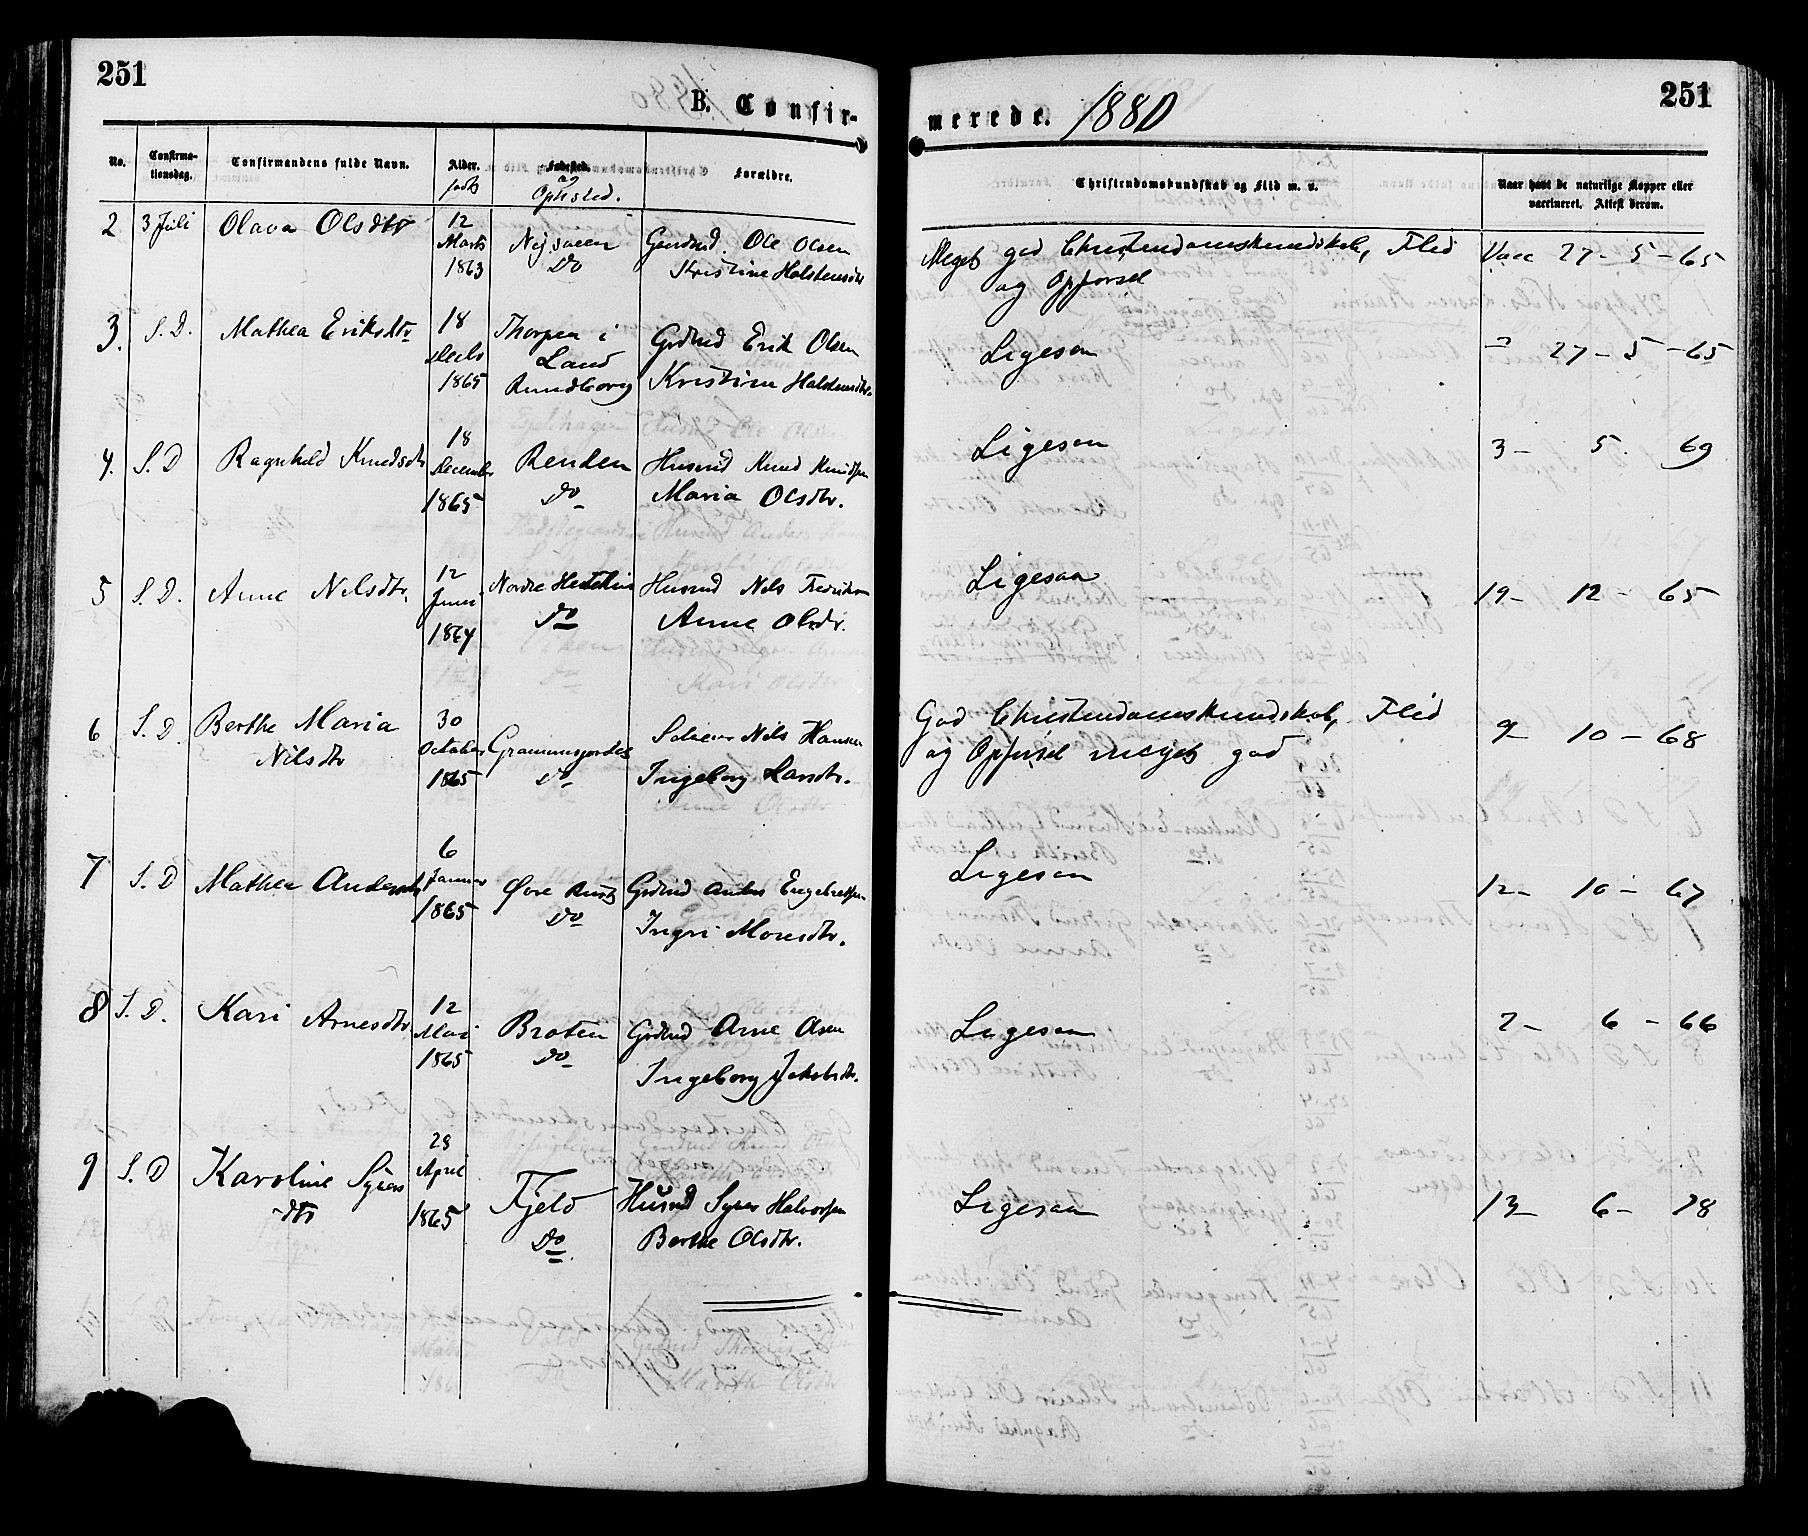 251
B. Confir-
merede. 1880
251
No.
Confirma-
tionsdag.
Confirmandens fulde Navn.
Alder.
født
Fødested.
og
Opholsted.
Forældre.
Christendomskundskab og Flid m. v.
Naar havt de naturlige Kopper eller
vaccineret. Attest derom.
2 3 Juli Olava Olsdtr
12
Marts
1863
Do
Gaardmd. Ole Olsen
Kristine Halstensdtr
Meget god Christendomskundskab, Flid
og Opførsel
Vacc 27 - 5 - 65
3. S. D. Mathea Eriksdtr
18
Decbr
1865
Thorpen i
Land
Rundborg
Grdmd Erik Olsen
Kristine Halstensdtr.
Ligesaa
" 27 - 5 - 65
4. S. D Ragnhild Knudsdtr
18
December
1865
Renden
Do
Husmd Knud Knudsen
Maria Olsdtr.
Ligesaa
3 - 5. 69
5 S. D. Anne Nilsdtr.
12
Juni
1864
Nordre
Do
Husmd Nils Fredriksen
Anne Olsdtr.
Ligesaa
19 - 12 - 65
6 S. D. Berthe Maria
Nilsdtr
30
October
1865
Do
Nils Hansen
Ingeborg Larsdtr.
God Christendomskundskab, Flid
og Opførsel meget god
9 - 10 - 68
7 S. D Mathea Andersdtr
6
Januar
1865
Øvre Rust
Do
Grdmd Anders Engebretsen
Ingri Monsdtr.
Ligesaa
12 - 10 - 67
8 S. D. Kari Arnesdtr
12
Mai
1865
Broten
Do
Grdmd Arne Olsen
Ingeborg Jakobsdtr.
Ligesaa
2 - 6 - 66
9 S. D Karoline Syvers
dtr
28
April
1865
Fjeld
Do
Husmd Syver Halvorsen
Berthe Olsdtr.
Ligesaa
13 - 6 - 78